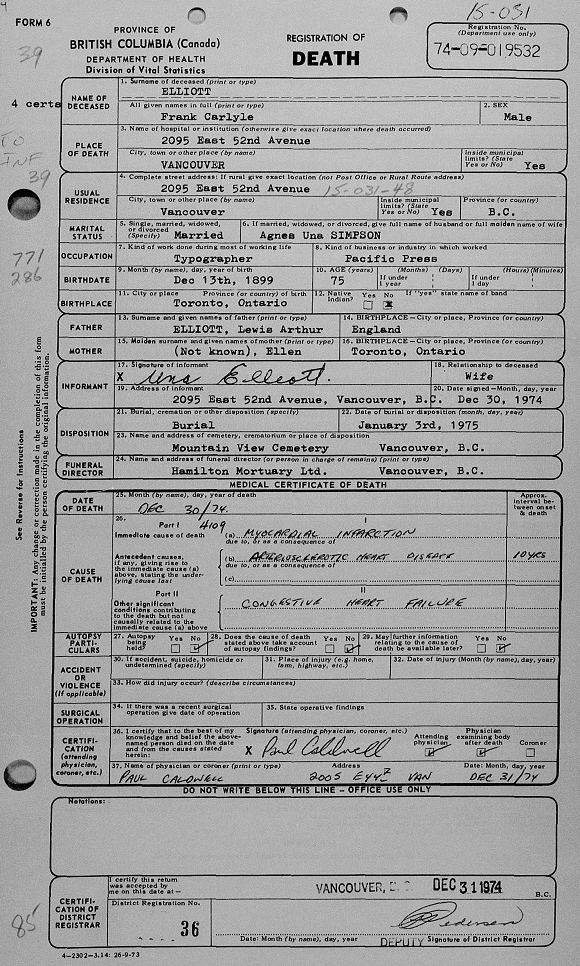 15-031
FORM 6
PROVINCE OF
BRITISH COLUMBIA (Canada)
DEPARTMENT OF HEALTH
Division of Vital Statistics
REGISTRATION OF
DEATH
Registration No.
(Department use only)
74-09-019532
39
4 certs
TO
INF
39
771
286
85
See Reverse for Instructions
IMPORTANT: Any change or correction made in the completion of this form must be initialled by the person certifying the original information.
NAME OF DECEASED
1. Surname of deceased (print or type)
ELLIOTT
All given names in full (print or type) 2. SEX
Frank Carlyle Male
PLACE OF DEATH
3. Name of hospital or institution (otherwise give exact location where death occurred)
2095 East 52nd Avenue
City, town or other place (by name) Inside municipal limits? (State Yes or No)
VANCOUVER Yes
USUAL RESIDENCE
4. Complete street address: If rural give exact location (not Post Office or Rural Route address)
2095 East 52nd Avenue 15-031-48
City, town or other place (by name) Inside municipal limits? (State Yes or No) Province (or country)
Vancouver Yes B.C.
MARITAL STATUS
5. Single, married, widowed, or divorced (Specify) 6. If married, widowed, or divorced, give full name of husband or full maiden name of wife
Married Agnes Una SIMPSON
OCCUPATION
7. Kind of work done during most of working life 8. Kind of business or industry in which worked
Typographer Pacific Press
BIRTHDATE
9. Month (by name), day, year of birth 10. AGE (years) (Months) (Days) (Hours) (Minutes)
Dec 13th, 1899 75 If under 1 year If under 1 day
BIRTHPLACE
11. City or place Province (or country) of birth 12. Native Indian? Yes No If "yes" state name of band
Toronto, Ontario
FATHER
13. Surname and given names of father (print or type) 14. BIRTHPLACE—City or place, Province (or country)
ELLIOTT, Lewis Arthur England
MOTHER
15. Maiden surname and given names of mother (print or type) 16. BIRTHPLACE—City or place, Province (or country)
(Not known), Ellen Toronto, Ontario
INFORMANT
17. Signature of informant 18. Relationship to deceased
X Una Elliott. Wife
19. Address of informant 20. Date signed—Month, day, year
2095 East 52nd Avenue, Vancouver, B.C. Dec 30, 1974
DISPOSITION
21. Burial, cremation or other disposition (specify) 22. Date of burial or disposition (month, day, year)
Burial January 3rd, 1975
23. Name and address of cemetery, crematorium or place of disposition
Mountain View Cemetery Vancouver, B.C.
FUNERAL DIRECTOR
24. Name and address of funeral director (or person in charge of remains) (print or type)
Hamilton Mortuary Ltd. Vancouver, B.C.
MEDICAL CERTIFICATE OF DEATH
DATE OF DEATH
25. Month (by name), day, year of death
DEC 30/74.
Approx. interval between onset & death
CAUSE OF DEATH
26. Part I 4109 I
Immediate cause of death (a) MYOCARDIAL INFARCTION
due to, or as a consequence of
Antecedent causes, if any, giving rise to the immediate cause (a) above, stating the underlying cause last
(b) ARTERIOSCLEROTIC HEART DISEASE 10 YRS
due to, or as a consequence of
(c)
Part II II
Other significant conditions contributing to the death but not causally related to the immediate cause (a) above
CONGESTIVE HEART FAILURE
AUTOPSY PARTICULARS
27. Autopsy being held? Yes No 28. Does the cause of death stated above take account of autopsy findings? Yes No 29. May further information relating to the cause of death be available later? Yes No
ACCIDENT OR VIOLENCE (if applicable)
30. If accident, suicide, homicide or undetermined (specify) 31. Place of injury (e.g. home, farm, highway, etc.) 32. Date of injury (Month (by name), day, year)
33. How did injury occur? (describe circumstances)
SURGICAL OPERATION
34. If there was a recent surgical operation give date of operation 35. State operative findings
CERTIFICATION (attending physician, coroner, etc.)
36. I certify that to the best of my knowledge and belief the above-named person died on the date and from the causes stated herein:
Signature (attending physician, coroner, etc.) Attending physician Physician examining body after death Coroner
X Paul Caldwell
37. Name of physician or coroner (print or type) Address Date: Month, day, year
PAUL CALDWELL 2005 E 44 VAN DEC 31/74
DO NOT WRITE BELOW THIS LINE - OFFICE USE ONLY
Notations:
CERTIFICATION OF DISTRICT REGISTRAR
I certify this return was accepted by me on this date at—
VANCOUVER, DEC 31 1974 B.C.
District Registration No.
36
Pedersen
Date: Month (by name), day, year DEPUTY Signature of District Registrar
4-2302-3.14: 26-9-73